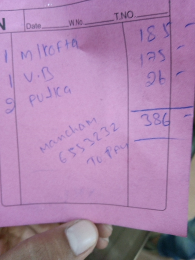 N Date W.No T.NO
1 M/Kofta 185 -
1 V.B 175 -
2 Pulka 26 -
386 -
Mancham
6553232
To Pay